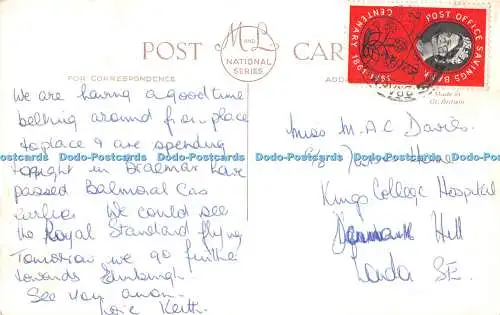 POST CARD
M and L
NATIONAL
SERIES
FOR CORRESPONDENCE
ADD
Made in
Gt. Britain
POST OFFICE SAVINGS BANK
CENTENARY 1861-1961
We are having a good time
belting around from place
to place & are spending
tonight in Braemar have
passed Balmoral Cas
earlier. We could see
the Royal Standard flying
Tomorrow we go further
towards Edinburgh.
See you anon.
Keith.
Miss M. A. C. Davies.
Kings College Hospital
Denmark Hill
London SE.
Dodo-Postcards Dodo-Postcards Dodo-Postcards Dodo-Postcards